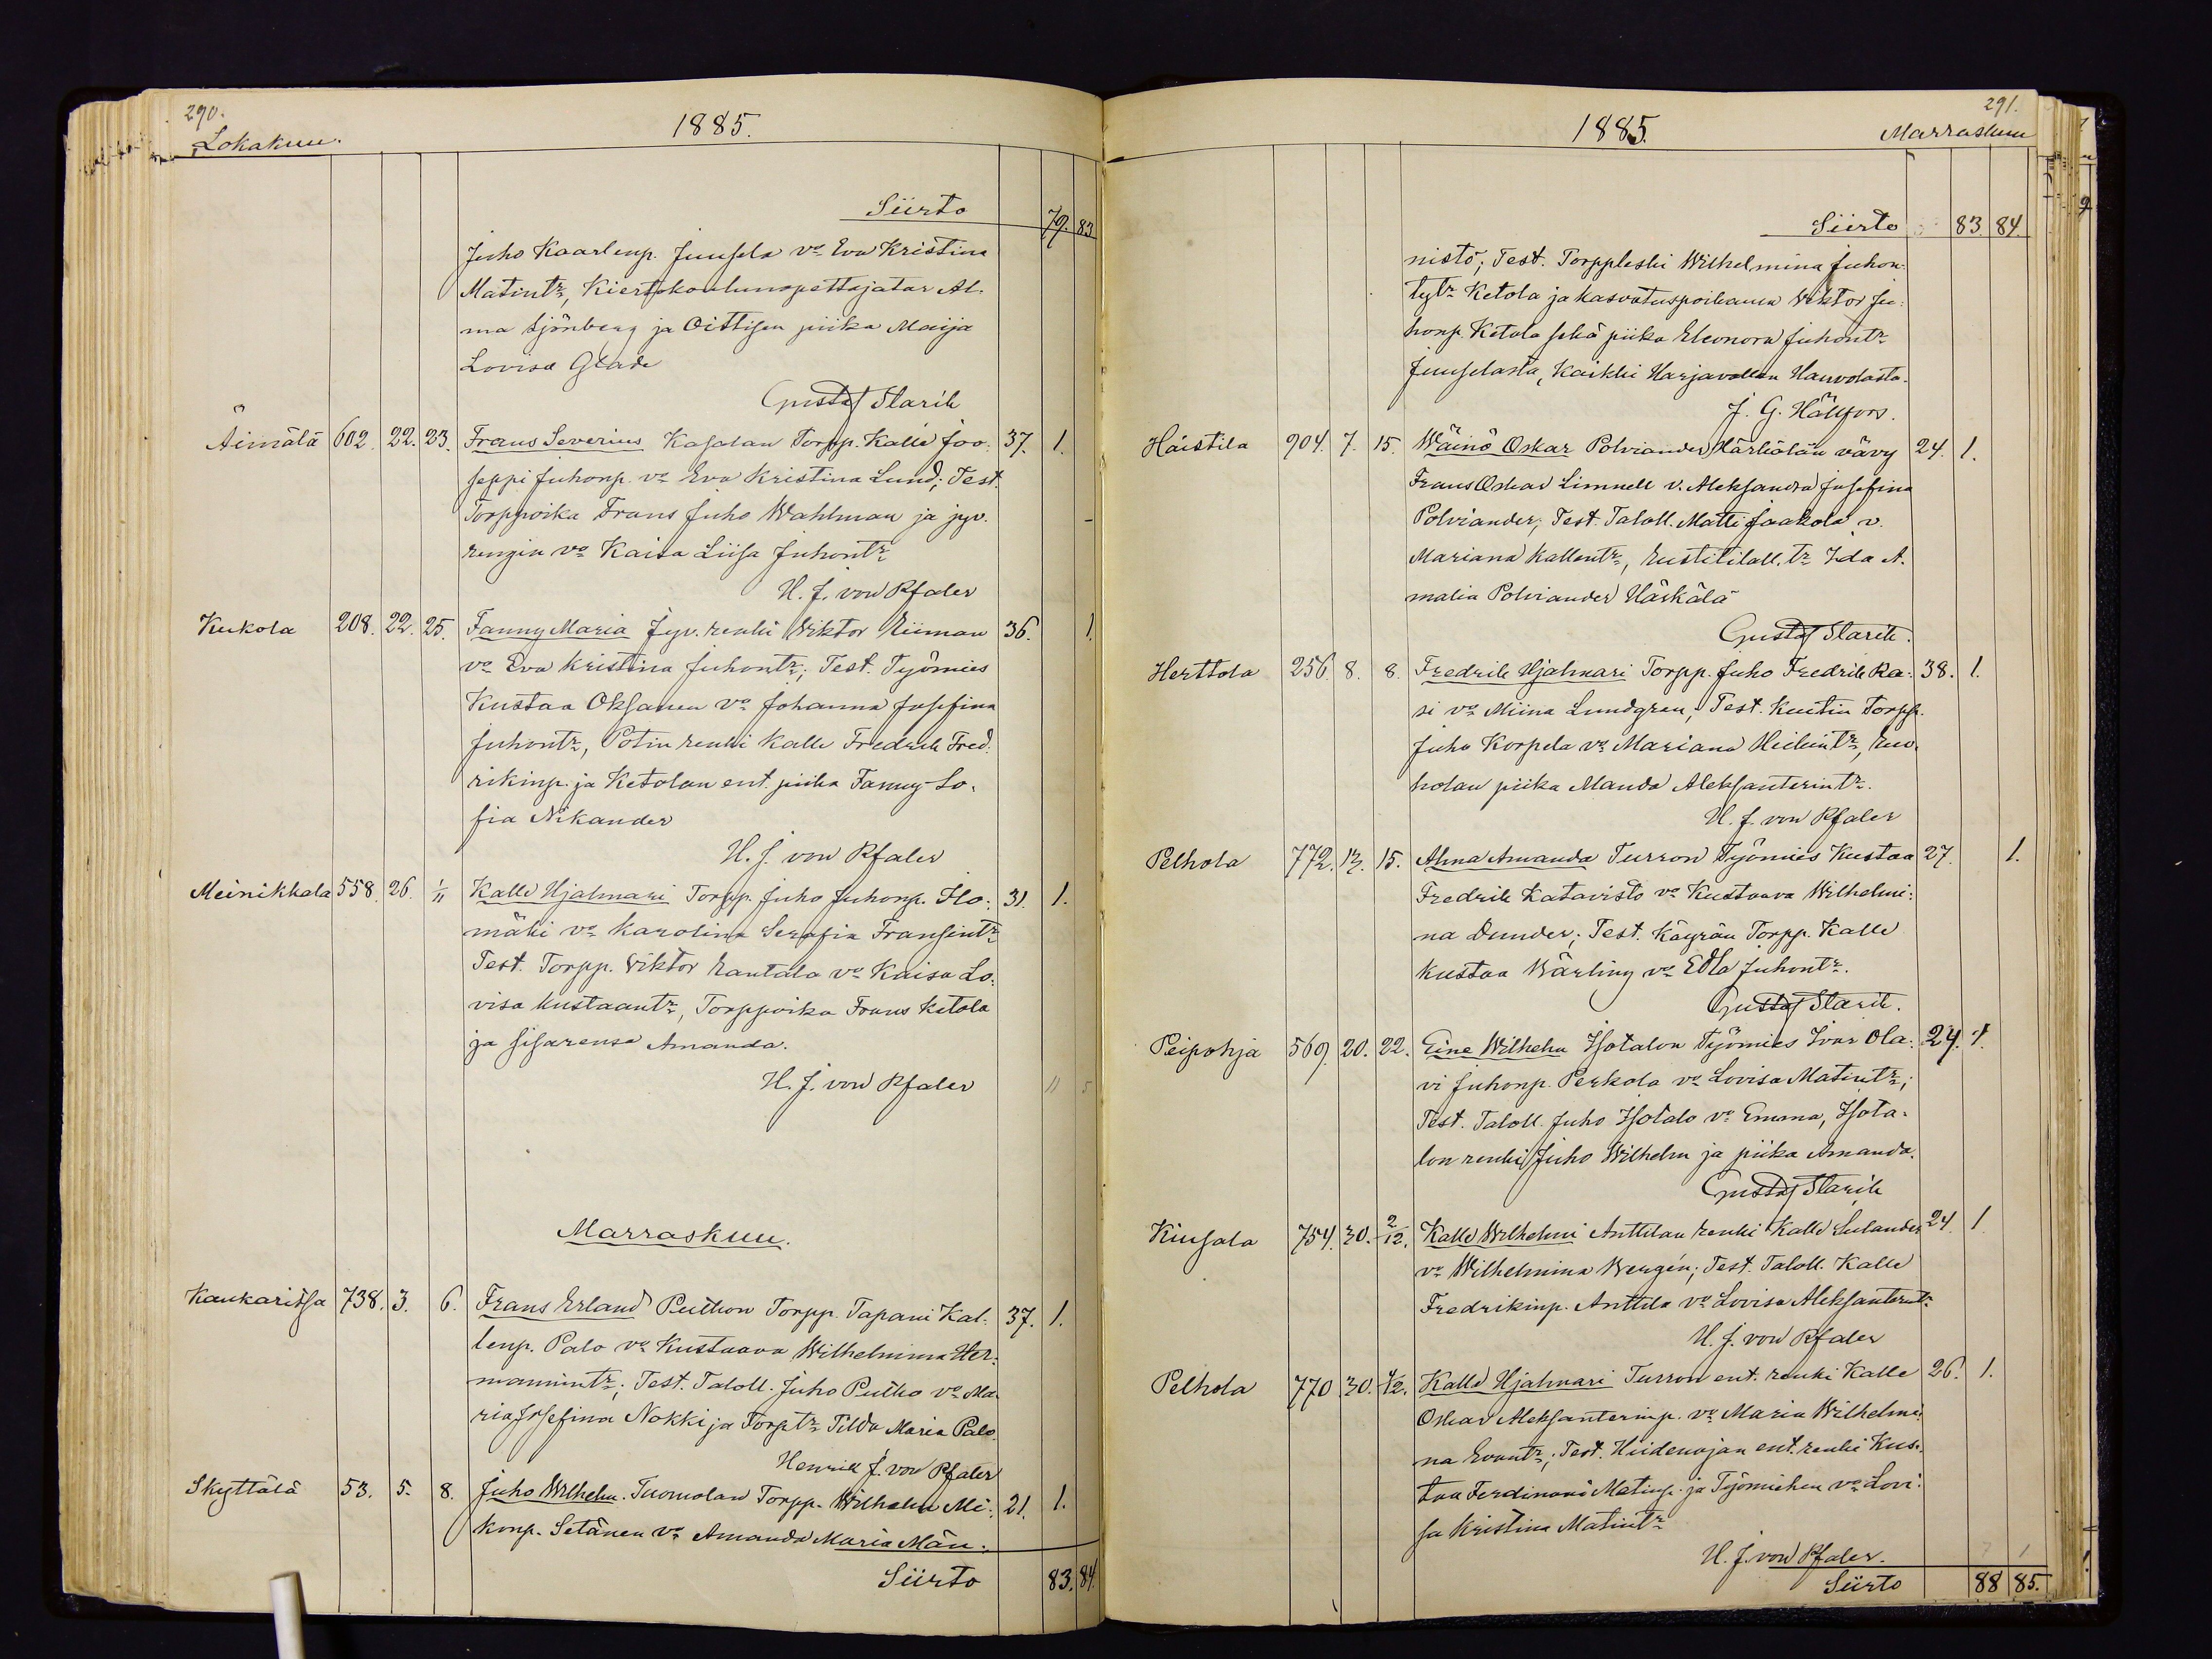 290.
Lokakuu.
1885.
Siirto 79. 83
Juho Kaarlenp. Juusela vo Eva Kristina
Matintr, Kiertokoulunopettajatar Al-
ma Sjönberg ja Oittisen piika Maija
Lovisa Glade
Gustaf Starik
Äimälä 602. 22. 23. Frans Severius Kasalan Torpp. Kalle Joo- 37. 1.
seppi Juhonp. vo Eva Kristina Lund; Test.
Torppoika Frans Juho Wahlman ja jyv.
rengin vo Kaisa Liisa Juhontr
H. J. von Pfaler
Kukola 208. 22. 25. Fanny Maria Jyv. renki Wiktor 36. 1.
vo Eva Kristina Juhontr; Test. Työmies
Kustaa Oksanen vo Johanna Josefina
Juhontr, Potin renki Kalle Fredrik Fred-
rikinp. ja Ketolan ent. piika Fanny So-
fia Nikander
H. J. von Pfaler
Meinikkala 558. 26. 1/11 Kalle Hjalmari Torpp. Juho Juhonp. Ilo- 31. 1.
mäki vo Karolina Serafia Fransintr
Test. Torpp. Viktor Rantala vo Kaisa Lo-
visa Kustaantr, Torppoika Frans Ketola
ja sisarensa Amanda.
H. J. von Pfaler
Marraskuu.
Kaukaritsa 738. 3. 6. Frans Erland Puthon Torpp. Tapani Kal- 37. 1.
lenp. Palo vo Kustaava Wilhelmina Her-
mannintr; Test. Taloll. Juho Putho vo Ma-
ria Josefina Nokki ja Torptr Tilda Maria Palo.
Henrik J. von Pfaler
Skyttälä 53. 5. 8. Juho Wilhelm. Tuomolan Torpp. Wilhelm Mi- 21. 1.
konp. Setänen vo Amanda Maria Män-
Siirto 83. 84.
291.
1885.
Marraskuu
Siirto 83. 84.
nistö; Test. Torppleski Wilhelmina Juhon-
tytr Ketola ja kasvatuspoikansa Viktor Ju-
honp. Ketola sekä piika Eleonora Juhontr
Juuselasta, Kaikki Harjavallan
J. G. Hällfors.
Häistila 904. 7. 15. Wäinö Oskar Polviander Härkälän vävy 24. 1.
Frans Oskar Limnell v. Aleksandra Josefina
Polviander; Test. Taloll. Matti Jaakola v.
Mariana Kallentr, Rustitilall. tr Ida A-
malia Polviander Härkälä
Gustaf Starik.
Herttola 256. 8. 8. Fredrik Hjalmari Torpp. Juho Fredrik Ra- 38. 1.
si vo Miina Lundgren; Test. Kutin Torpp.
Juho Korpela vo Mariana Heikintr,
holan piika Manda Aleksanterintr.
H. J. von Pfaler
Pelhola 772. 13. 15. Alma Amanda Turron Työmies Kustaa 27. 1.
Fredrik Katavisto vo Kustaava Wilhelmi-
na Dunder; Test. Käyrän Torpp. Kalle
Kustaa Wärling vo Edla Juhontr.
Gustaf Starik.
Peipohja 569. 20. 22. Eine Wilhelm Isotalon Työmies Ivar Ola- 24. 1.
vi Juhonp. Perkola vo Lovisa Matintr;
Test. Taloll. Juho Isotalo vo Emma, Isota-
lon renki Juho Wilhelm ja piika Amanda.
Gustaf Starik
Kiusala 754. 30. 2/12. Kalle Wilhelmi Anttilan renki Kalle Sulander 24 1
vo Wilhelmina Wengén; Test. Taloll. Kalle
Fredrikinp. Anttila vo Lovisa Aleksanterintr
H. J. von Pfaler
Pelhola 770 30. 4/12. Kalle Hjalmari Turron ent. renki Kalle 26. 1.
Oskar Aleksanterinp. vo Maria Wilhelmi-
na Evantr; Test. Hiidenojan ent. renki Kus-
taa Ferdinani Matinp. ja Työmiehen vo Lovi-
sa Kristina Matintr
H. J. von Pfaler.
Siirto 88 85.